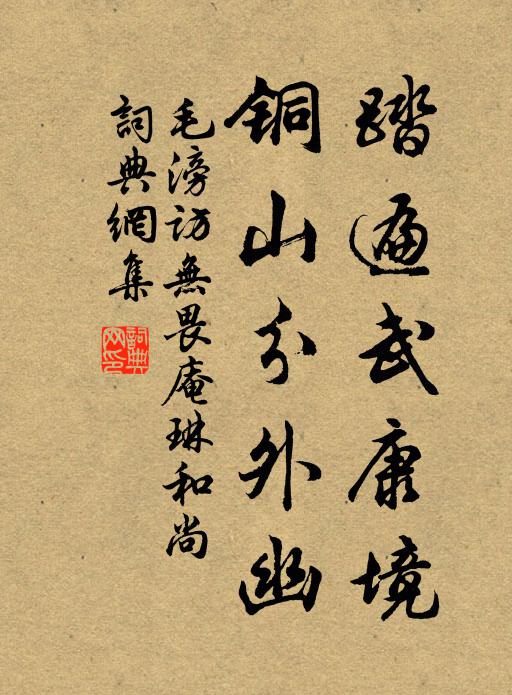 踏遍武康境
銅山分外幽
毛滂訪無畏庵琳和尚
詞典網集
詞典
网印